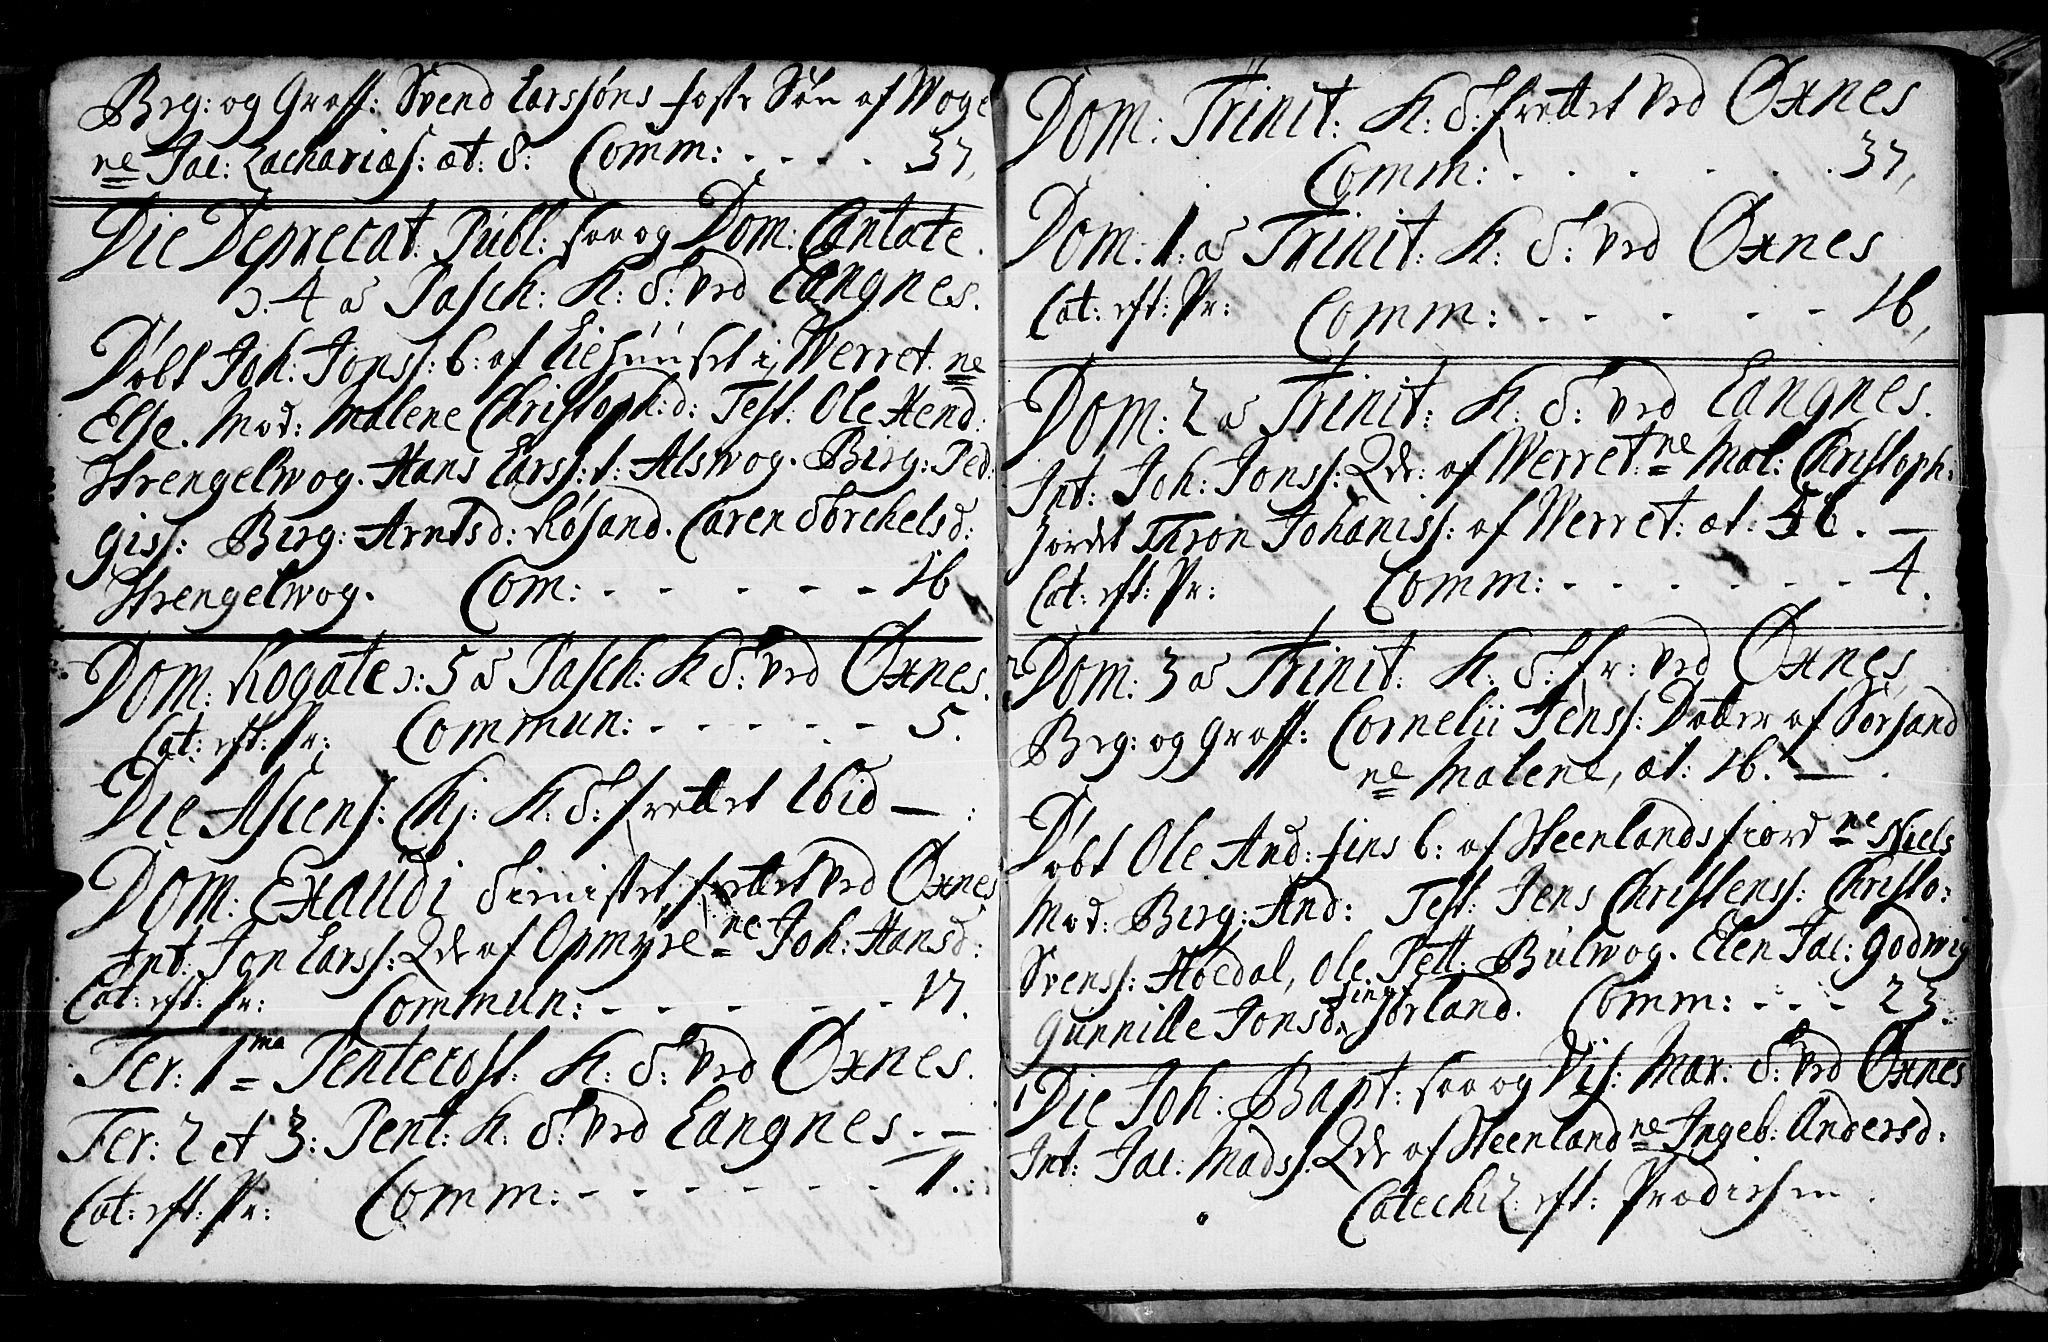 Beg: og Graff: Svend Larssøns foster Søn af Woge
ne Jac: Zachariæs: æt: 8: Comm: - - - - 37,
Die Deprecat: Publ: saa og Dom: Cantate.
ɔ: 4 a Pasch: K: S: ved Langnes.
Døbt Joh: Jonss: b: af Liehuuset i Werret: ne
Else. Mod: Malene Christoph:d: Test: Ole Hend:
Strengelwog. Hans Larss: i: Alswog. Birg: Ped:
Giss: Birg: Arntsd: Røsand. Caren Torchelsd:
Strengelwog. Com: - - - - - 16
Dom: Rogate ɔ: 5 a Pasch: K S: ved Øxnes.
Cat: eft: Pr: Commun: - - - - - 5.
Die Ascens: Chj: K: S: forrettet Ibid — :
Dom: Exaudi Tienistet forrettet ved Øxnes
Int: Jon Larss: Qde af Opmyre ne Joh: Hansd:
Cat: eft: Pr: Commun: - - - - - - 17.
Fer: 1ma Pentecost: K: S: ved Øxnes.
Fer: 2 et 3: Pent: K: S: ved Langnes. -
Cat: eft: Pr: Comm: - - - - - - 11.
Dom: Trinit: K: S: forrettet ved Øxnes
Comm: - - - - - - 37,
Dom: 1: a Trinit: K: S: ved Øxnes
Cat: eft: Pr: Comm: - - - - - - 16,
Dom: 2 a Trinit: K: S: ved Langnes.
Int: Joh: Jonss: Qde: af Werret: ne Mal: Christoph:
Jordet Thron Johaniss: af Werret: æt: 56. —
Cat: eft: Pr: Comm: - - - - - - 4.
Dom: 3 a Trinit: K: S: fr: ved Øxnes
Beg: og Graff: Cornelii Jenss: Datter af Sørsand
ne Malene, æt: 16. — .
Døbt Ole And: fins b: af Steenlandsfiord ne Niels
Mod: Birg: And: Test: Jens Christenss: Christo:
Svenss: Høedal, Ole Pett: Bulwog. Elen Jac: Godwig
Gunnille Jonsd: fins Jørland. Comm: - - - 23.
Die Joh: Bapt: saa og Vis: Mar: S: ved Øxnes
Int: Jac: Mads: Qde af Steenland ne Ingeb: Andersd:
Catechiz: eft: Prædichen.